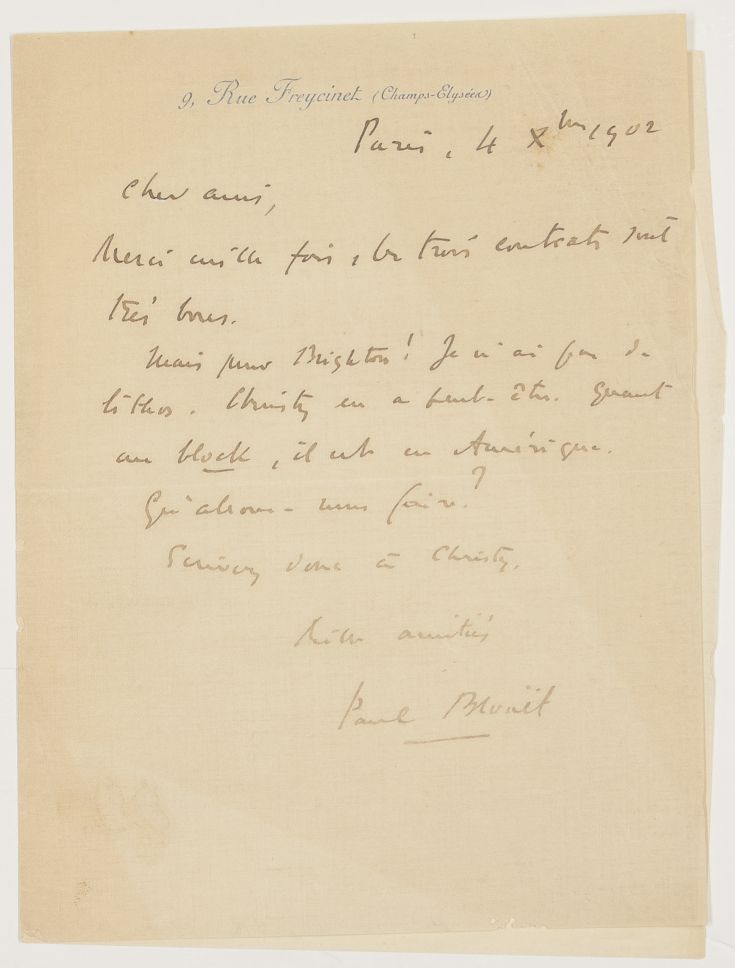 9, Rue Freycinet (Champs-Elysées)
Paris, 4 Xbre 1902
Cher ami,
Merci mille fois, les trois contrats sont
très bons.
Mais pour Brighton! Je n'ai pas de
lithos. Christy en a peut-être. Quant
au block, il est en Amérique.
Qu'allons-nous faire?
Ecrivez donc à Christy.
Mille amitiés
Paul Blouët